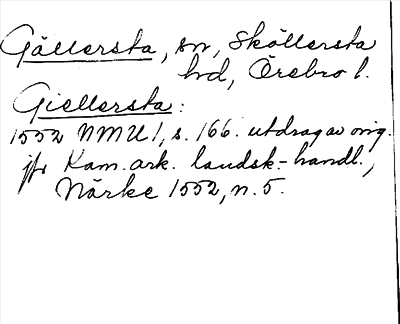 Gällersta, sn, Sköllersta
hd, Örebro l.
Giellersta:
1552 NMU 1, s. 166. utdrag av orig.
jfr Kam. ark. landsk.-handl.,
Närke 1552, n. 5.